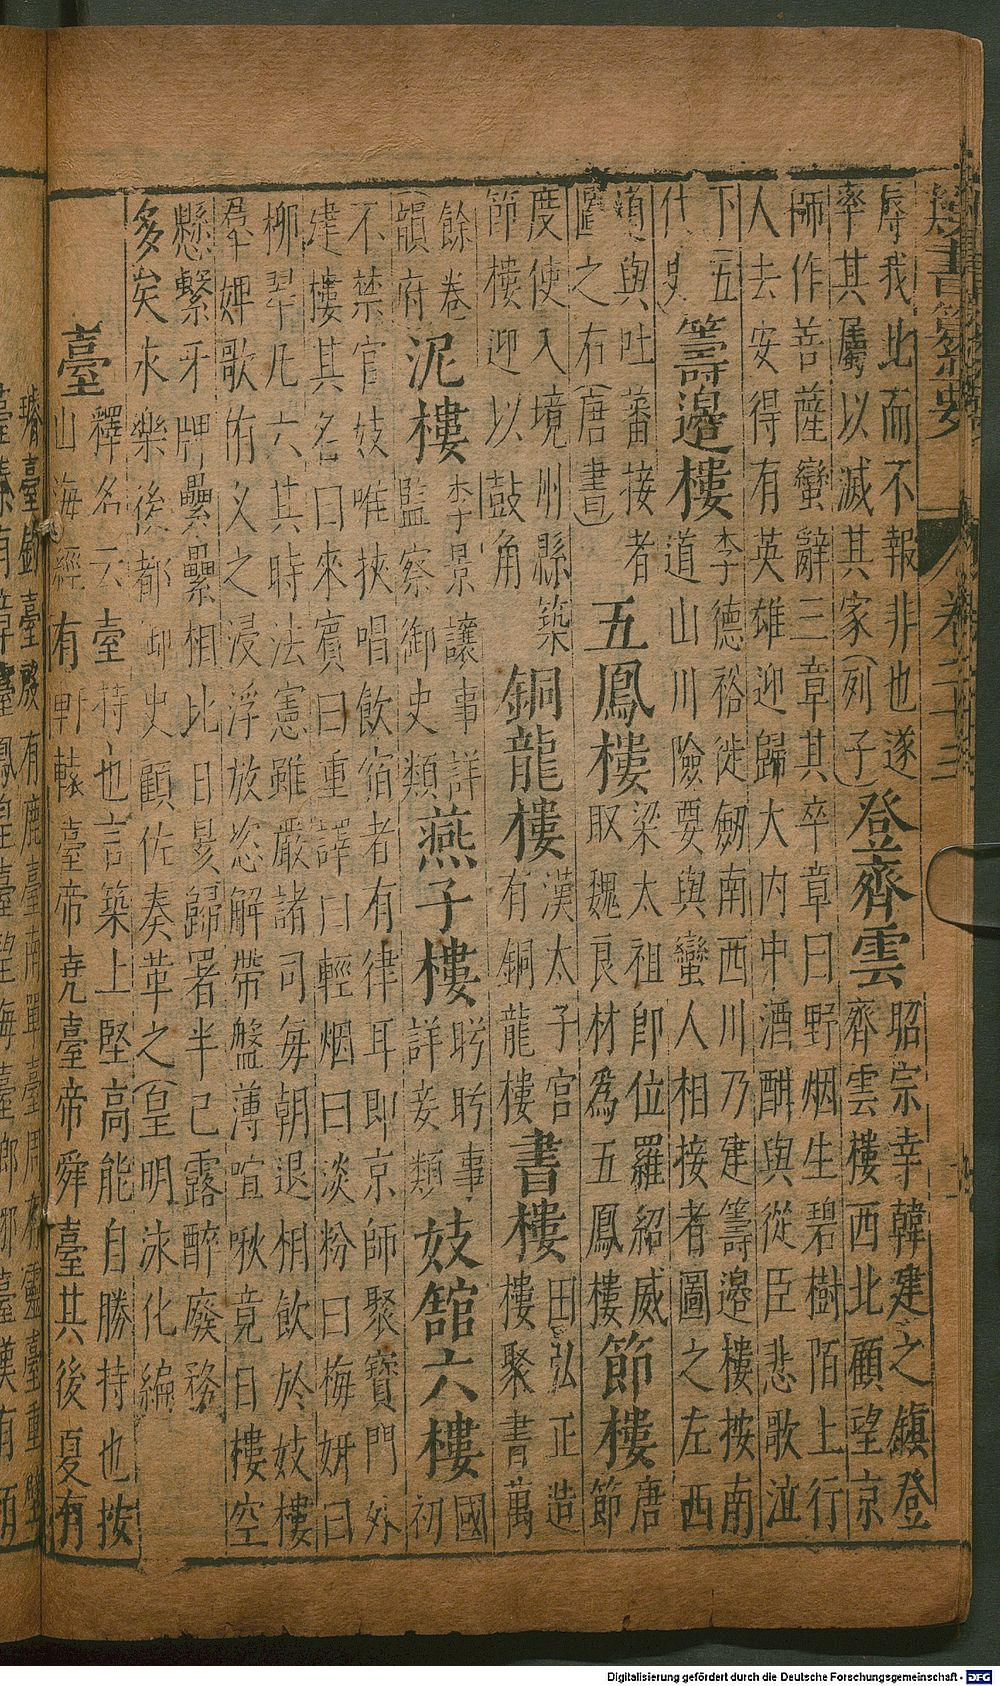 類書纂要 卷二十三
辱我此而不報非也遂
率其屬以滅其家(列子)
登齊雲
昭宗幸韓建之鎮登
齊雲樓西北顧望京
師作菩薩蠻辭三章其卒章曰野烟生碧樹陌上行
人去安得有英雄迎歸大内中酒酣與從臣悲歌泣
下(五
代史)
籌邊樓
李德裕徙劔南西川乃建籌邊樓按南
道山川險要與蠻人相接者圖之左西
道與吐蕃接者
圖之右(唐書)
五鳳樓
梁太祖即位羅紹威
取魏良材爲五鳳樓
節樓
唐
節
度使入境州縣築
節樓迎以鼓角
銅龍樓
漢太子宮
有銅龍樓
書樓
田弘正造
樓聚書萬
餘卷
(韻府
泥樓
李景讓事詳
監察御史類
燕子樓
盻盻事
詳妾類
妓舘六樓
國
初
不禁官妓唯挾唱飲宿者有律耳即京師聚寶門外
建樓其名曰來賓曰重譯曰輕烟曰淡粉曰梅妍曰
柳翠凡六其時法憲雖嚴諸司每朝退相飲於妓樓
羣婢歌侑乂之浸浮放恣解帶盤薄喧啾竟日樓空
懸繫牙牌纍纍相比日昃歸署半已露醉廢務
多矣永樂後都御史顧佐奏革之(皇明泳化編
臺
釋名云臺持也言築上堅高能自勝持也按
山海經有軒轅臺帝堯臺帝舜臺其後夏有
璿臺鈞臺殷有鹿臺南單臺周有靈臺重璧
臺秦有章臺鳳皇臺望海臺瑯琊臺漢有栢
Digitalisierung gefördert durch die Deutsche Forschungsgemeinschaft - DFG